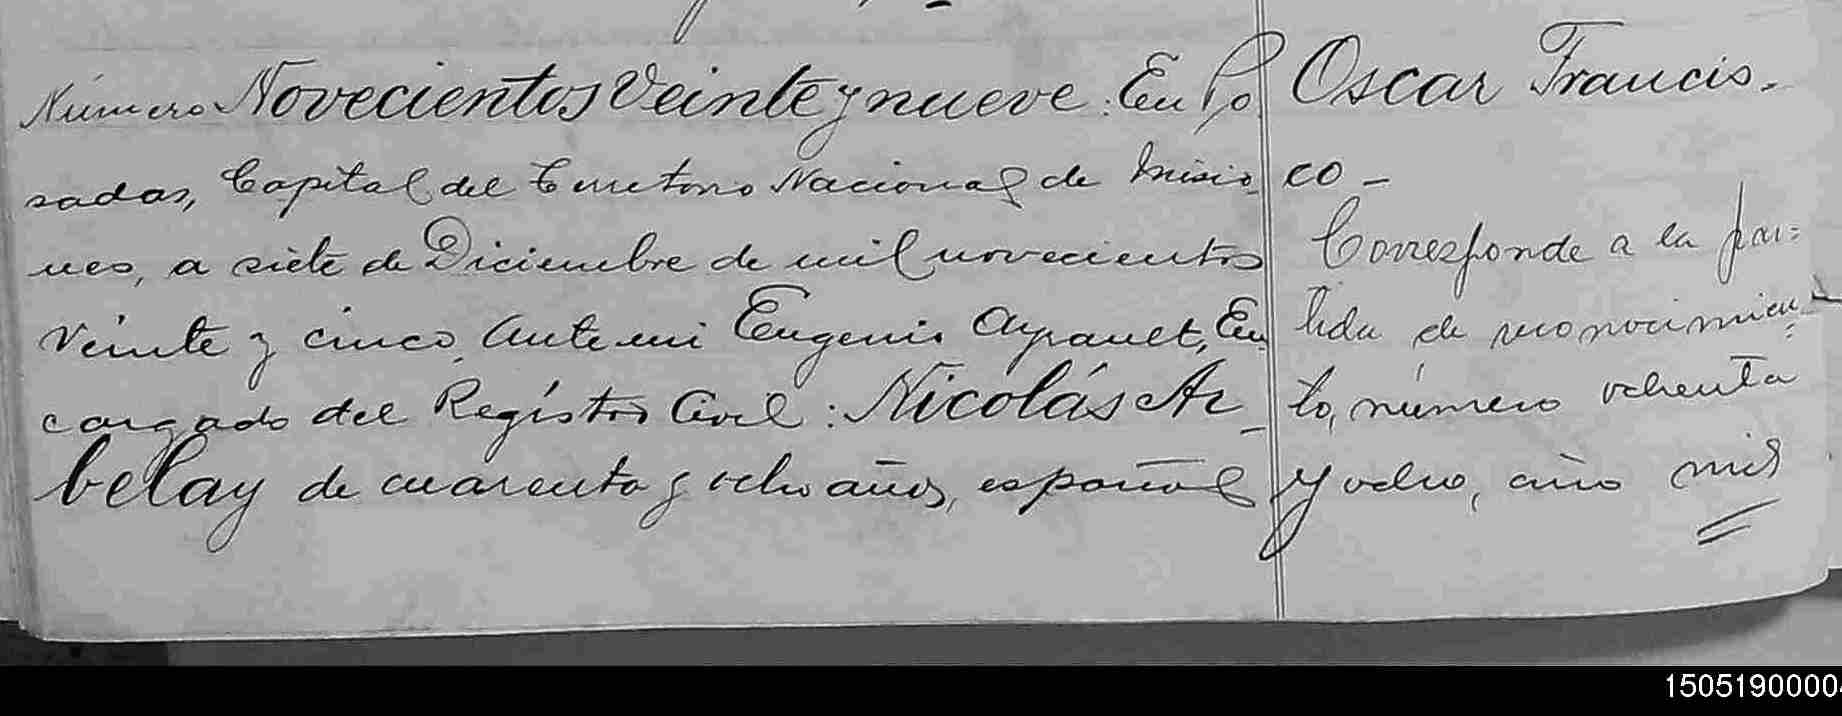 Número Novecientos Veinte y nueve: En Po
sadas, Capital del Territorio Nacional de Misio_
nes, a siete de Diciembre de mil novecientos
veinte y cinco, ante mi Eugenio Ayrault, En
cargado del Registro Civil: Nicolás Ar_
belay de cuarenta y ocho años, español
Oscar Francis-
co -
Corresponde a la par=
tida de reconocimien=
to, número ochenta
y ocho, año mil
1505190000